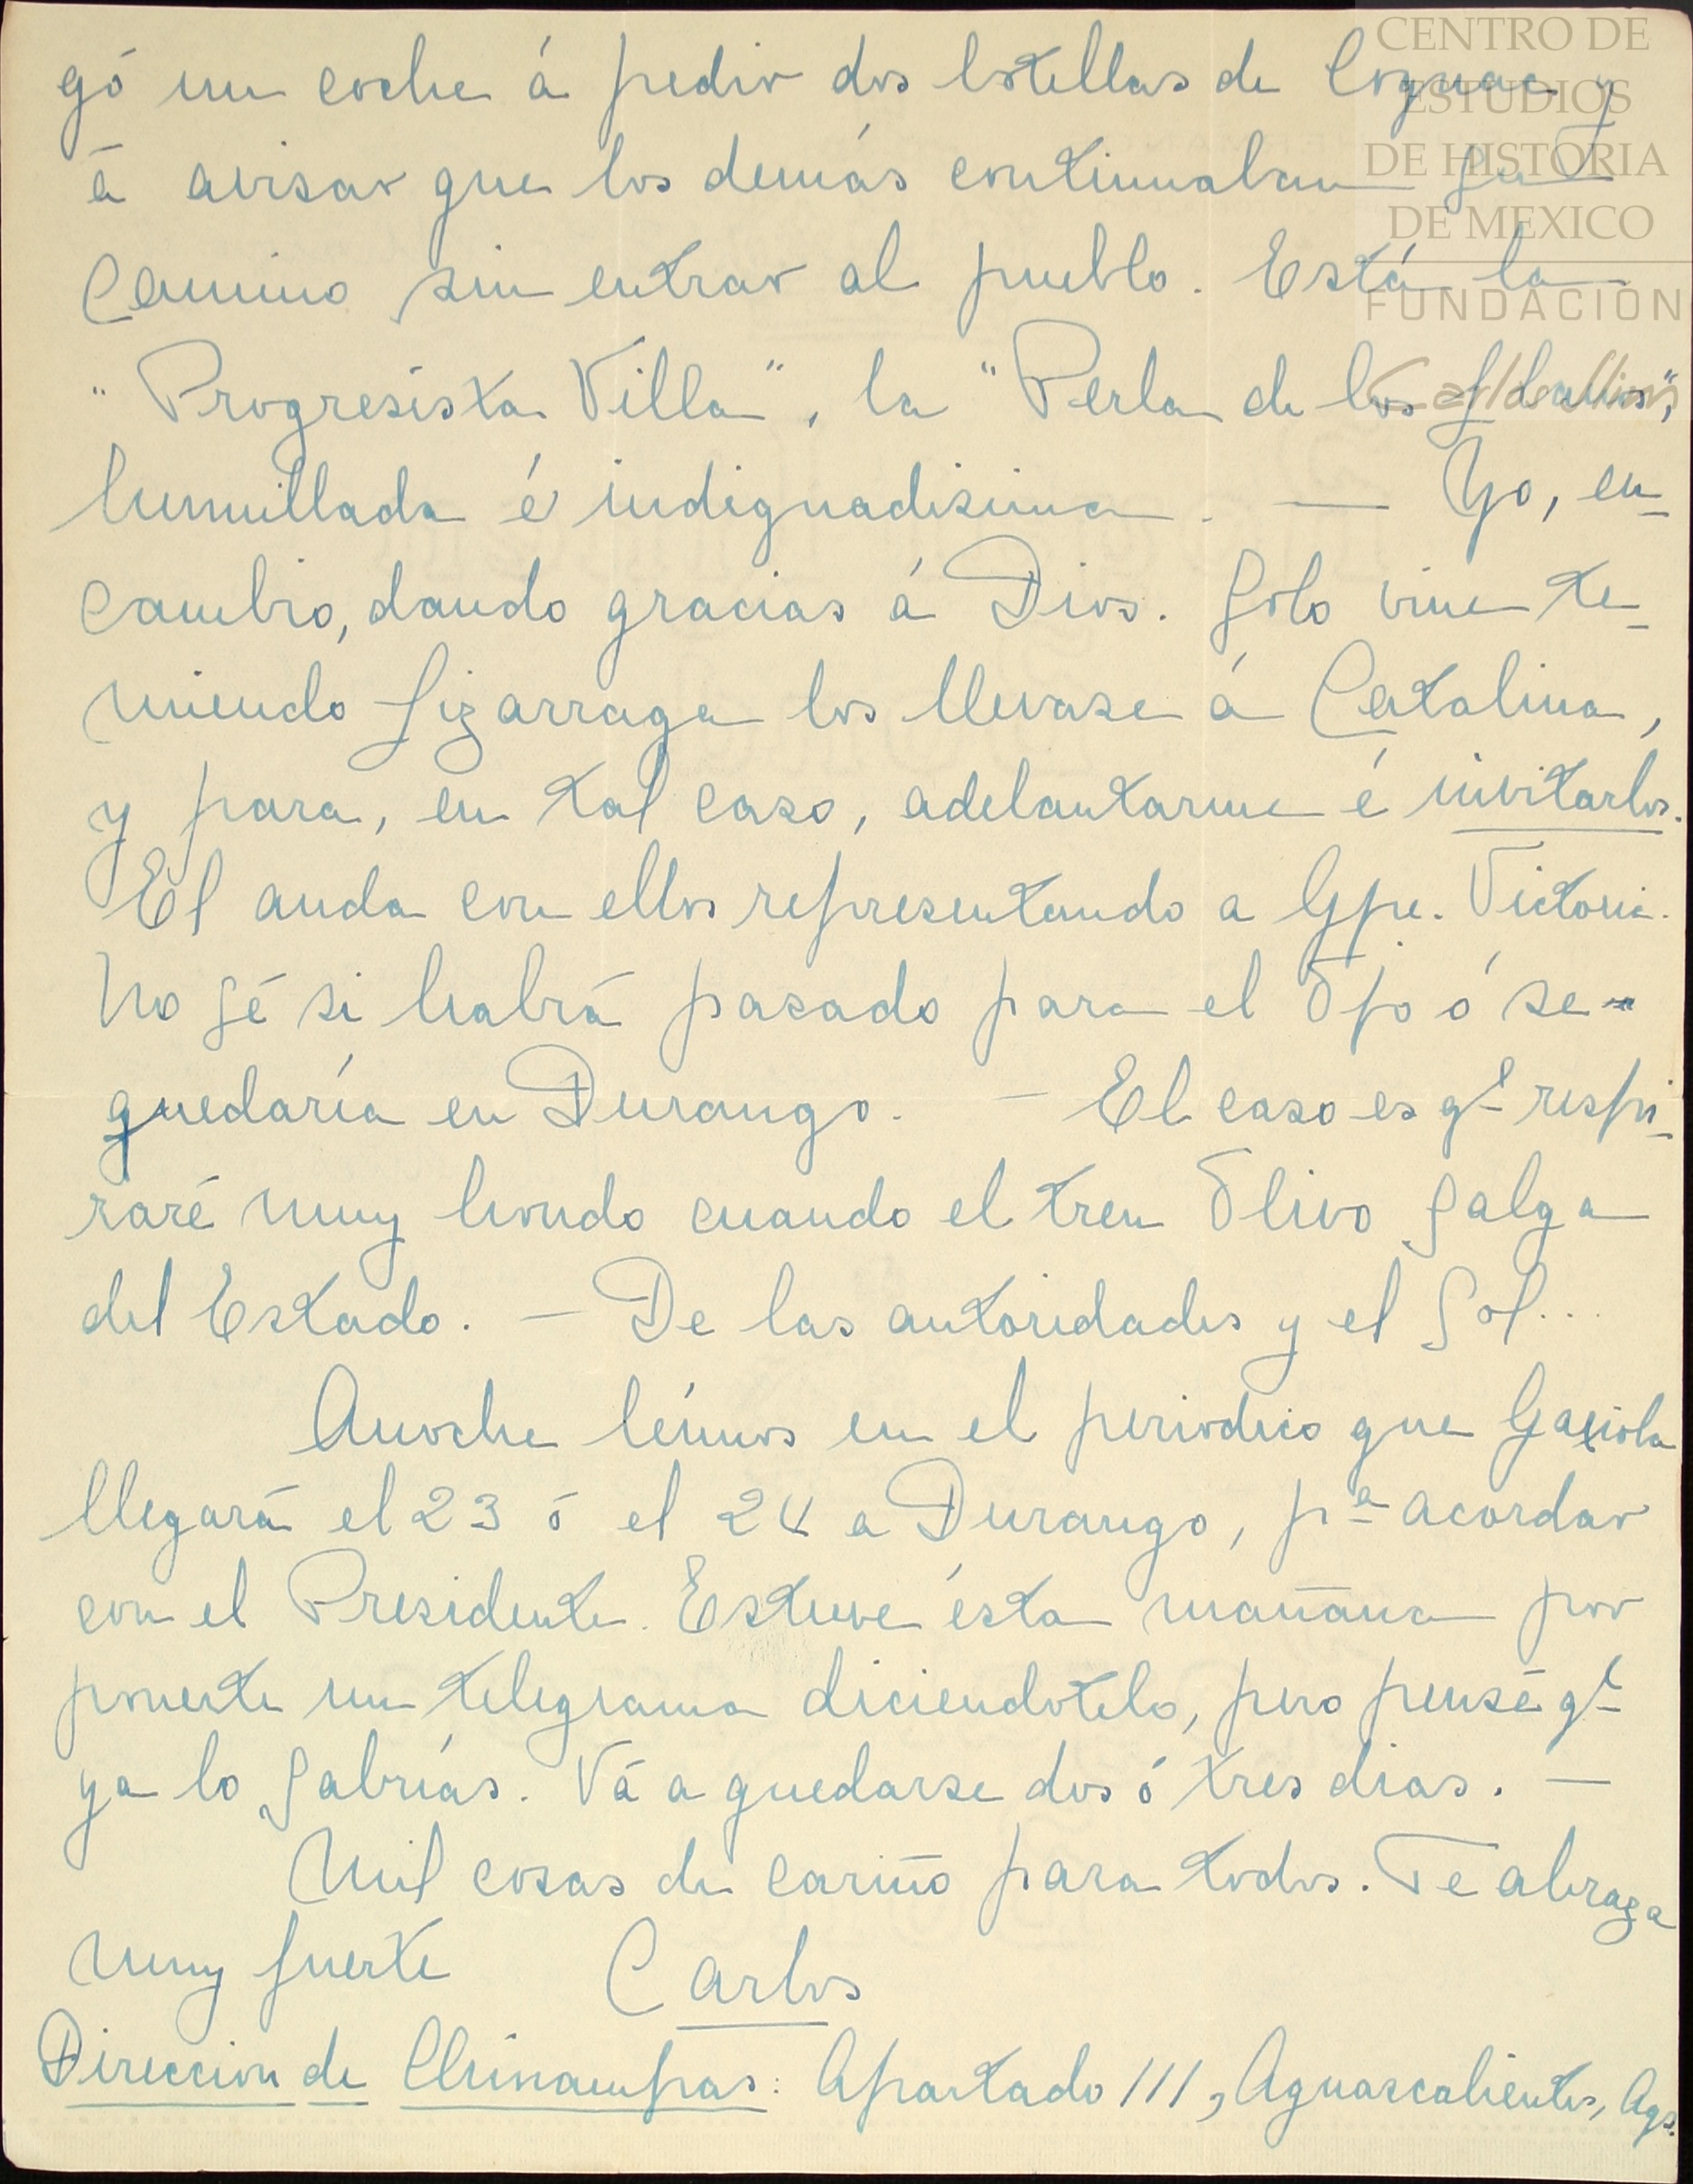 CENTRO DE
ESTUDIOS
DE HISTORIA
DE MEXICO
FUNDACIÓN
Carlos Slim
gó un coche á pedir dos botellas de Cognac y
á avisar que los demás continuaban su
Camino sin entrar al pueblo. Está la
"Progresista Villa", la "Perla de los Llanos",
humillada é indignadisima. — Yo, en-
cambio, dando gracias á Dios. Solo vine te-
miendo Lizarraga los llevase á Catalina,
y para, en tal caso, adelantarme é invitarlos.
El anda con ellos representando a Gpe. Victoria.
No sé si habrá pasado para el Ojo ó se
quedaría en Durango. — El caso es qe respi-
raré muy hondo cuando el tren Olivo salga
del Estado. — De las autoridades y el Sol...
Anoche leímos en el periodico que Gaxiola
llegará el 23 ó el 24 a Durango, pa acordar
con el Presidente. Estuve ésta mañana por
ponerte un telegrama diciendotelo, pero pensé qe
ya lo sabrías. Vá a quedarse dos ó tres dias. —
Mil cosas de cariño para todos. Te abraza
muy fuerte Carlos
Direccion de Chinampas: Apartado 111, Aguascalientes, Ags.